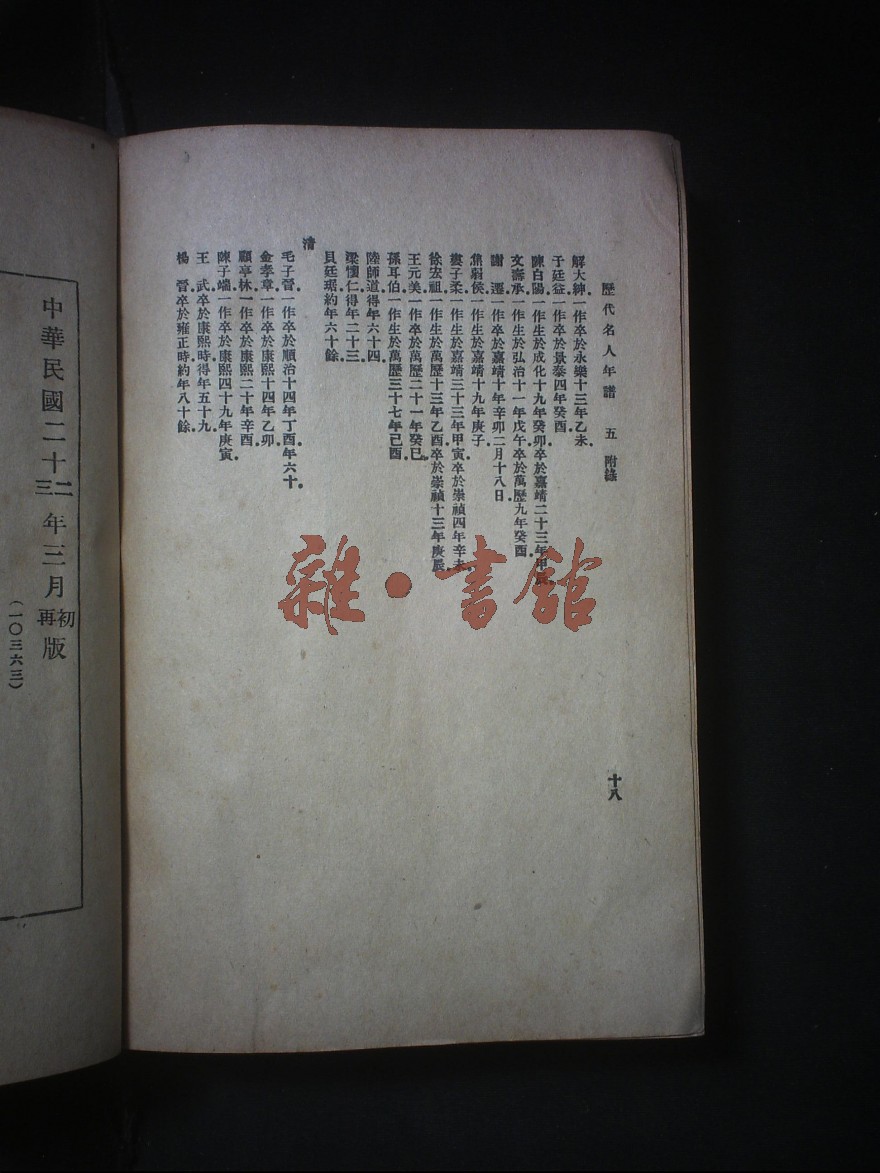 歷代名人年譜 五 附錄
解大紳一作卒於永樂十三年乙未
于廷益一作卒於景泰四年癸酉
陳白陽一作生於成化十九年癸卯卒於嘉靖二十三年甲辰
文壽承一作生於弘治十一年戊午卒於萬歷九年癸酉
謝 遷一作卒於嘉靖十年辛卯二月十八日
焦弱侯一作生於嘉靖十九年庚子
婁子柔一作生於嘉靖三十三年甲寅卒於崇禎四年辛未
徐宏祖一作生於萬歷十三年乙酉卒於崇禎十三年庚辰
王元美一作卒於萬歷二十一年癸巳
孫耳伯一作生於萬歷三十七年己酉
陸師道得年六十四
梁懷仁得年二十三
貝廷琚約年六十餘
清
毛子晉一作卒於順治十四年丁酉年六十
金孝章一作卒於康熙十四年乙卯
顧亭林一作卒於康熙二十年辛酉
陳子端一作卒於康熙四十九年庚寅
王 武卒於康熙時得年五十九
楊 晉卒於雍正時約年八十餘
十八
中華民國二十二三年三月初再版
(一〇三六三)
雜·書館